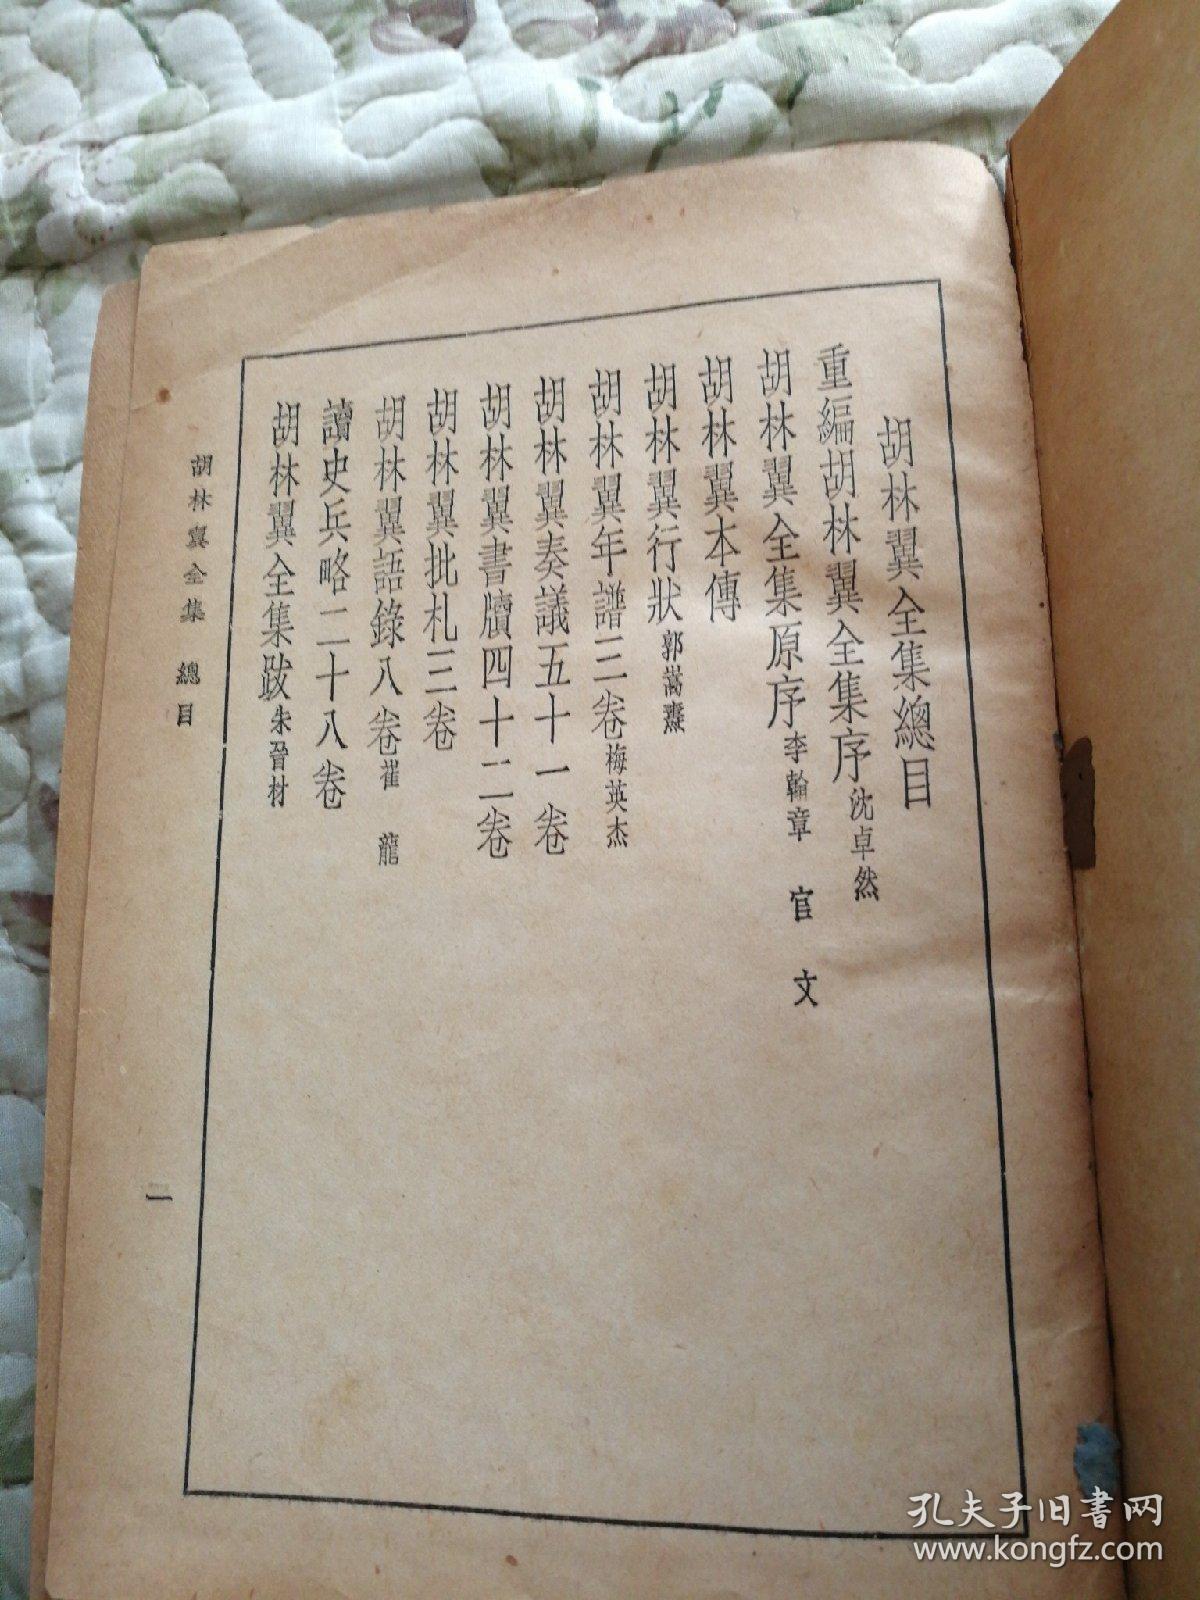 胡林翼全集總目
重編胡林翼全集序沈卓然
胡林翼全集原序李翰章 官 文
胡林翼本傳
胡林翼行狀郭嵩燾
胡林翼年譜三卷梅英杰
胡林翼奏議五十一卷
胡林翼書牘四十二卷
胡林翼批札三卷
胡林翼語錄八卷崔 龍
讀史兵略二十八卷
胡林翼全集跋朱晉材
胡林翼全集 總目
一
孔夫子旧书网
www.kongfz.com